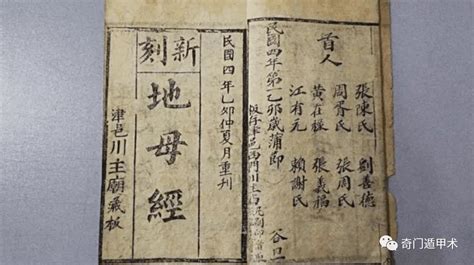 首人
張陳氏 劉善德
周胥氏 張周氏
黃在 張義福
江有元 賴謝氏
民國四年第一乙卯歲蒲節
谷旦
民國四年乙卯仲夏月重刊
新刻
地母經
津邑川主廟藏板
奇门遁甲术